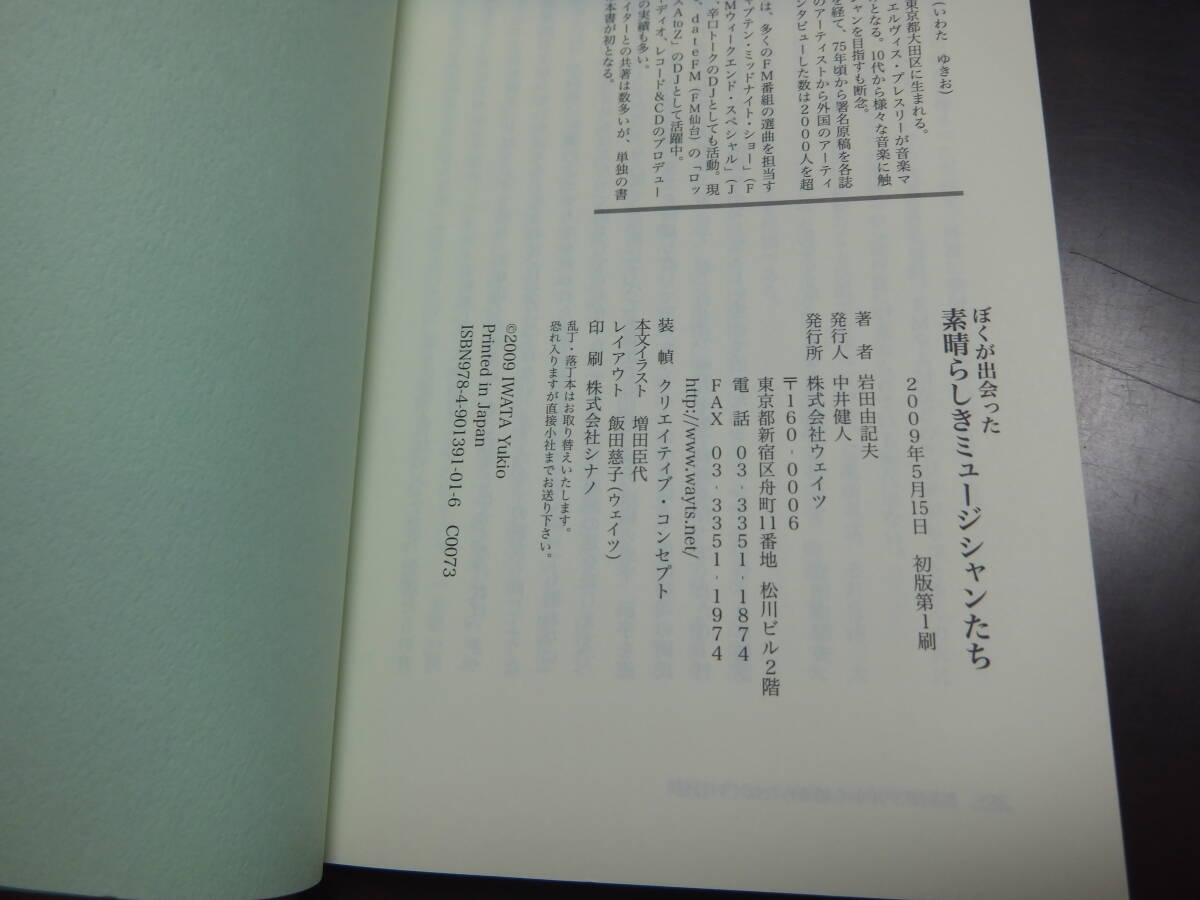 (いわた ゆきお)
東京都大田区に生まれる。
エルヴィス・プレスリーが音楽マ
となる。10代から様々な音楽に触
ャンを目指すも断念。
を経て、75年頃から署名原稿を各誌
のアーティストから外国のアーティ
ンタビューした数は2000人を超
は、多くのFM番組の選曲を担当す
ャプテン・ミッドナイト・ショー」(F
Mウィークエンド・スペシャル」(J
、辛口トークのDJとしても活動。現
、dateFM(FM仙台)の「ロッ
スAtoZ」のDJとして活躍中。
ディオ、レコード&CDのプロデュー
の実績も多い。
イターとの共著は数多いが、単独の書
本書が初となる。
ぼくが出会った
素晴らしきミュージシャンたち
2009年5月15日 初版第1刷
著 者 岩田由記夫
発行人 中井健人
発行所 株式会社ウェイツ
〒160-0006
東京都新宿区舟町11番地 松川ビル2階
電 話 03-3351-1874
FAX 03-3351-1974
http://www.wayts.net/
装 幀 クリエイティブ・コンセプト
本文イラスト 増田臣代
レイアウト 飯田慈子(ウェイツ)
印 刷 株式会社シナノ
乱丁・落丁本はお取り替えいたします。
恐れ入りますが直接小社までお送り下さい。
©2009 IWATA Yukio
Printed in Japan
ISBN978-4-901391-01-6 C0073